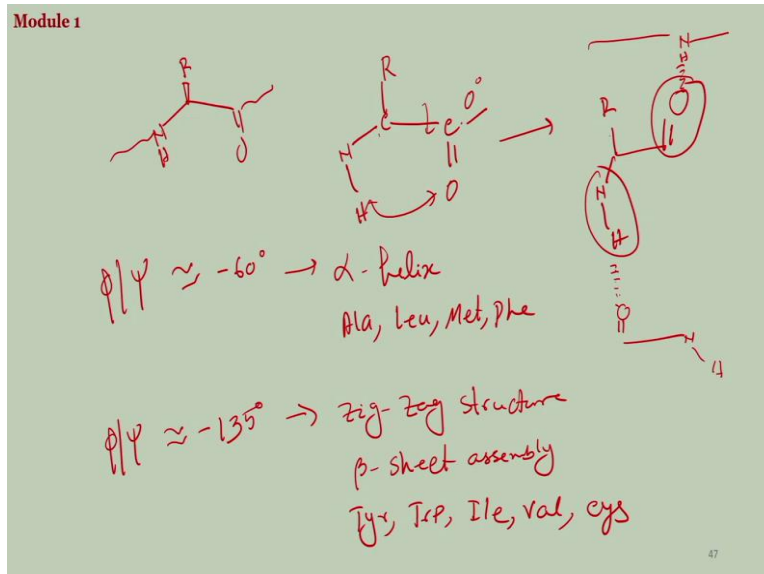 Module 1
R
N
H
O
R
C
C
0°
N
H
O
N
H
O
R
N
H
O
N
H
φ|ψ ≈ -60° → α-helix
Ala, Leu, Met, Phe
φ|ψ ≈ -135° → zig-zag structure
β-sheet assembly
Tyr, Trp, Ile, Val, cys
47